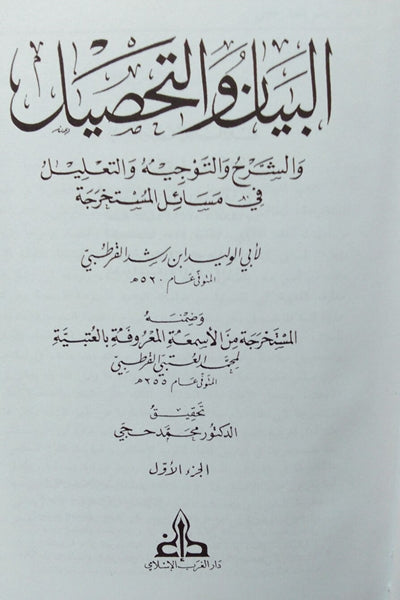 البيان والتحصيل
والشرح والتوجيه والتعليل
في مسائل المستخرجة
لأبي الوليد ابن رشد القرطبي
المتوفى عام ٥٢٠ هـ
وضمنه
المستخرجة من الأسمعة المعروفة بالعتبية
لمحمد العتبي القرطبي
المتوفى عام ٢٥٥ هـ
تحقيق
الدكتور محمد حجي
الجزء الأول
دار الغرب الإسلامي